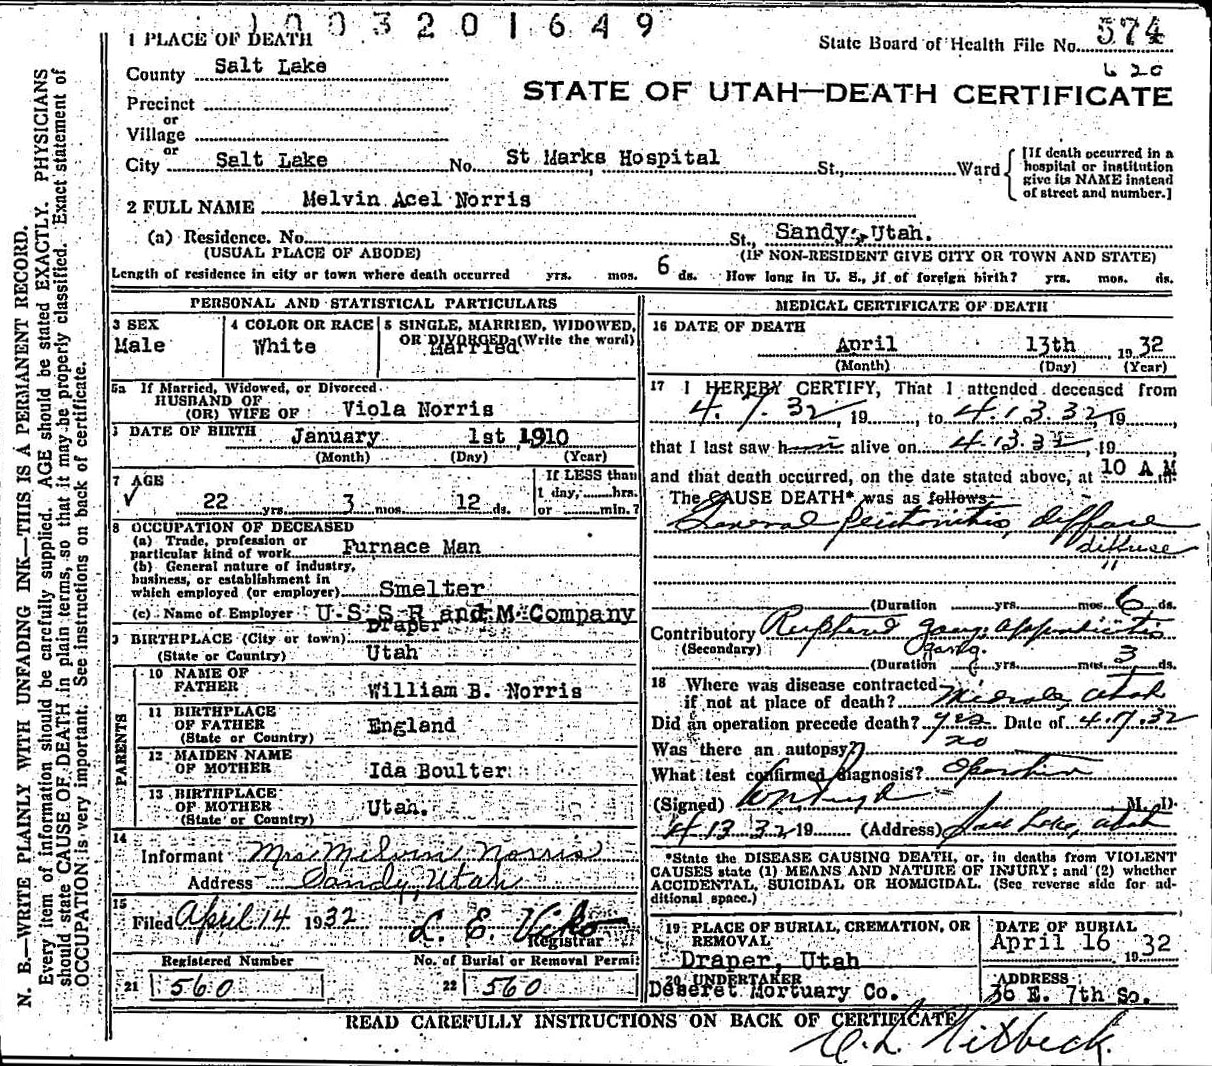 1003201649
1 PLACE OF DEATH
State Board of Health File No. 574
620
County Salt Lake
STATE OF UTAH—DEATH CERTIFICATE
Precinct
or
Village
or
City Salt Lake No. St Marks Hospital St., Ward
[If death occurred in a
hospital or institution
give its NAME instead
of street and number.]
2 FULL NAME Melvin Acel Norris
(a) Residence. No. St., Sandy, Utah.
(USUAL PLACE OF ABODE) (IF NON-RESIDENT GIVE CITY OR TOWN AND STATE)
Length of residence in city or town where death occurred yrs. mos. 6 ds. How long in U. S., if of foreign birth? yrs. mos. ds.
PERSONAL AND STATISTICAL PARTICULARS
3 SEX
Male
4 COLOR OR RACE
White
5 SINGLE, MARRIED, WIDOWED,
OR DIVORCED (Write the word)
Married
5a If Married, Widowed, or Divorced
HUSBAND OF
(OR) WIFE OF Viola Norris
DATE OF BIRTH January 1st 1910
(Month) (Day) (Year)
7 AGE
22 yrs. 3 mos. 12 ds.
If LESS than
1 day, hrs.
or min.?
8 OCCUPATION OF DECEASED
(a) Trade, profession or
particular kind of work Furnace Man
(b) General nature of industry,
business, or establishment in
which employed (or employer) Smelter
(c) Name of Employer U S S R and M Company
9 BIRTHPLACE (City or town) Draper
(State or Country) Utah
PARENTS
10 NAME OF
FATHER William B. Norris
11 BIRTHPLACE
OF FATHER England
(State or Country)
12 MAIDEN NAME
OF MOTHER Ida Boulter
13 BIRTHPLACE
OF MOTHER Utah.
(State or Country)
14
Informant Mrs Melvin Norris
Address Sandy, Utah
15
Filed April 14 1932 L. E. Viko
Registrar
Registered Number No. of Burial or Removal Permit
21 560 22 560
MEDICAL CERTIFICATE OF DEATH
16 DATE OF DEATH
April 13th, 1932
(Month) (Day) (Year)
17 I HEREBY CERTIFY, That I attended deceased from
4.7.32, 19, to 4.13.32, 19,
that I last saw h alive on 4.13.32, 19
and that death occurred, on the date stated above, at 10 A M m.
The CAUSE DEATH* was as follows:
General peritonitis, diffuse
diffuse
"
(Duration yrs. mos. 6 ds.
Contributory Ruptured gang. appendicitis
(Secondary) gang.
(Duration yrs. mos. 3 ds.
18 Where was disease contracted
if not at place of death? Midvale, Utah
Did an operation precede death? yes Date of 4.7.32
Was there an autopsy? no
What test confirmed diagnosis? Operation
(Signed) M. D.
4 13 32 19 (Address) Salt Lake, Utah
*State the DISEASE CAUSING DEATH, or, in deaths from VIOLENT
CAUSES state (1) MEANS AND NATURE OF INJURY; and (2) whether
ACCIDENTAL, SUICIDAL OR HOMICIDAL. (See reverse side for ad-
ditional space.)
19 PLACE OF BURIAL, CREMATION, OR
REMOVAL
Draper, Utah
DATE OF BURIAL
April 16 1932
20 UNDERTAKER
Deseret Mortuary Co.
ADDRESS
36 E. 7th So.
READ CAREFULLY INSTRUCTIONS ON BACK OF CERTIFICATE
N. B.—WRITE PLAINLY WITH UNFADING INK—THIS IS A PERMANENT RECORD.
Every item of information should be carefully supplied. AGE should be stated EXACTLY. PHYSICIANS
should state CAUSE OF DEATH in plain terms, so that it may be properly classified. Exact statement of
OCCUPATION is very important. See instructions on back of certificate.